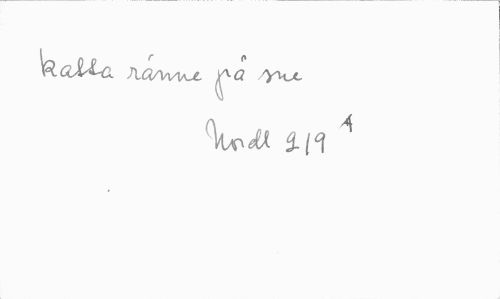 kalla ránne på sne
Nordl 219 A